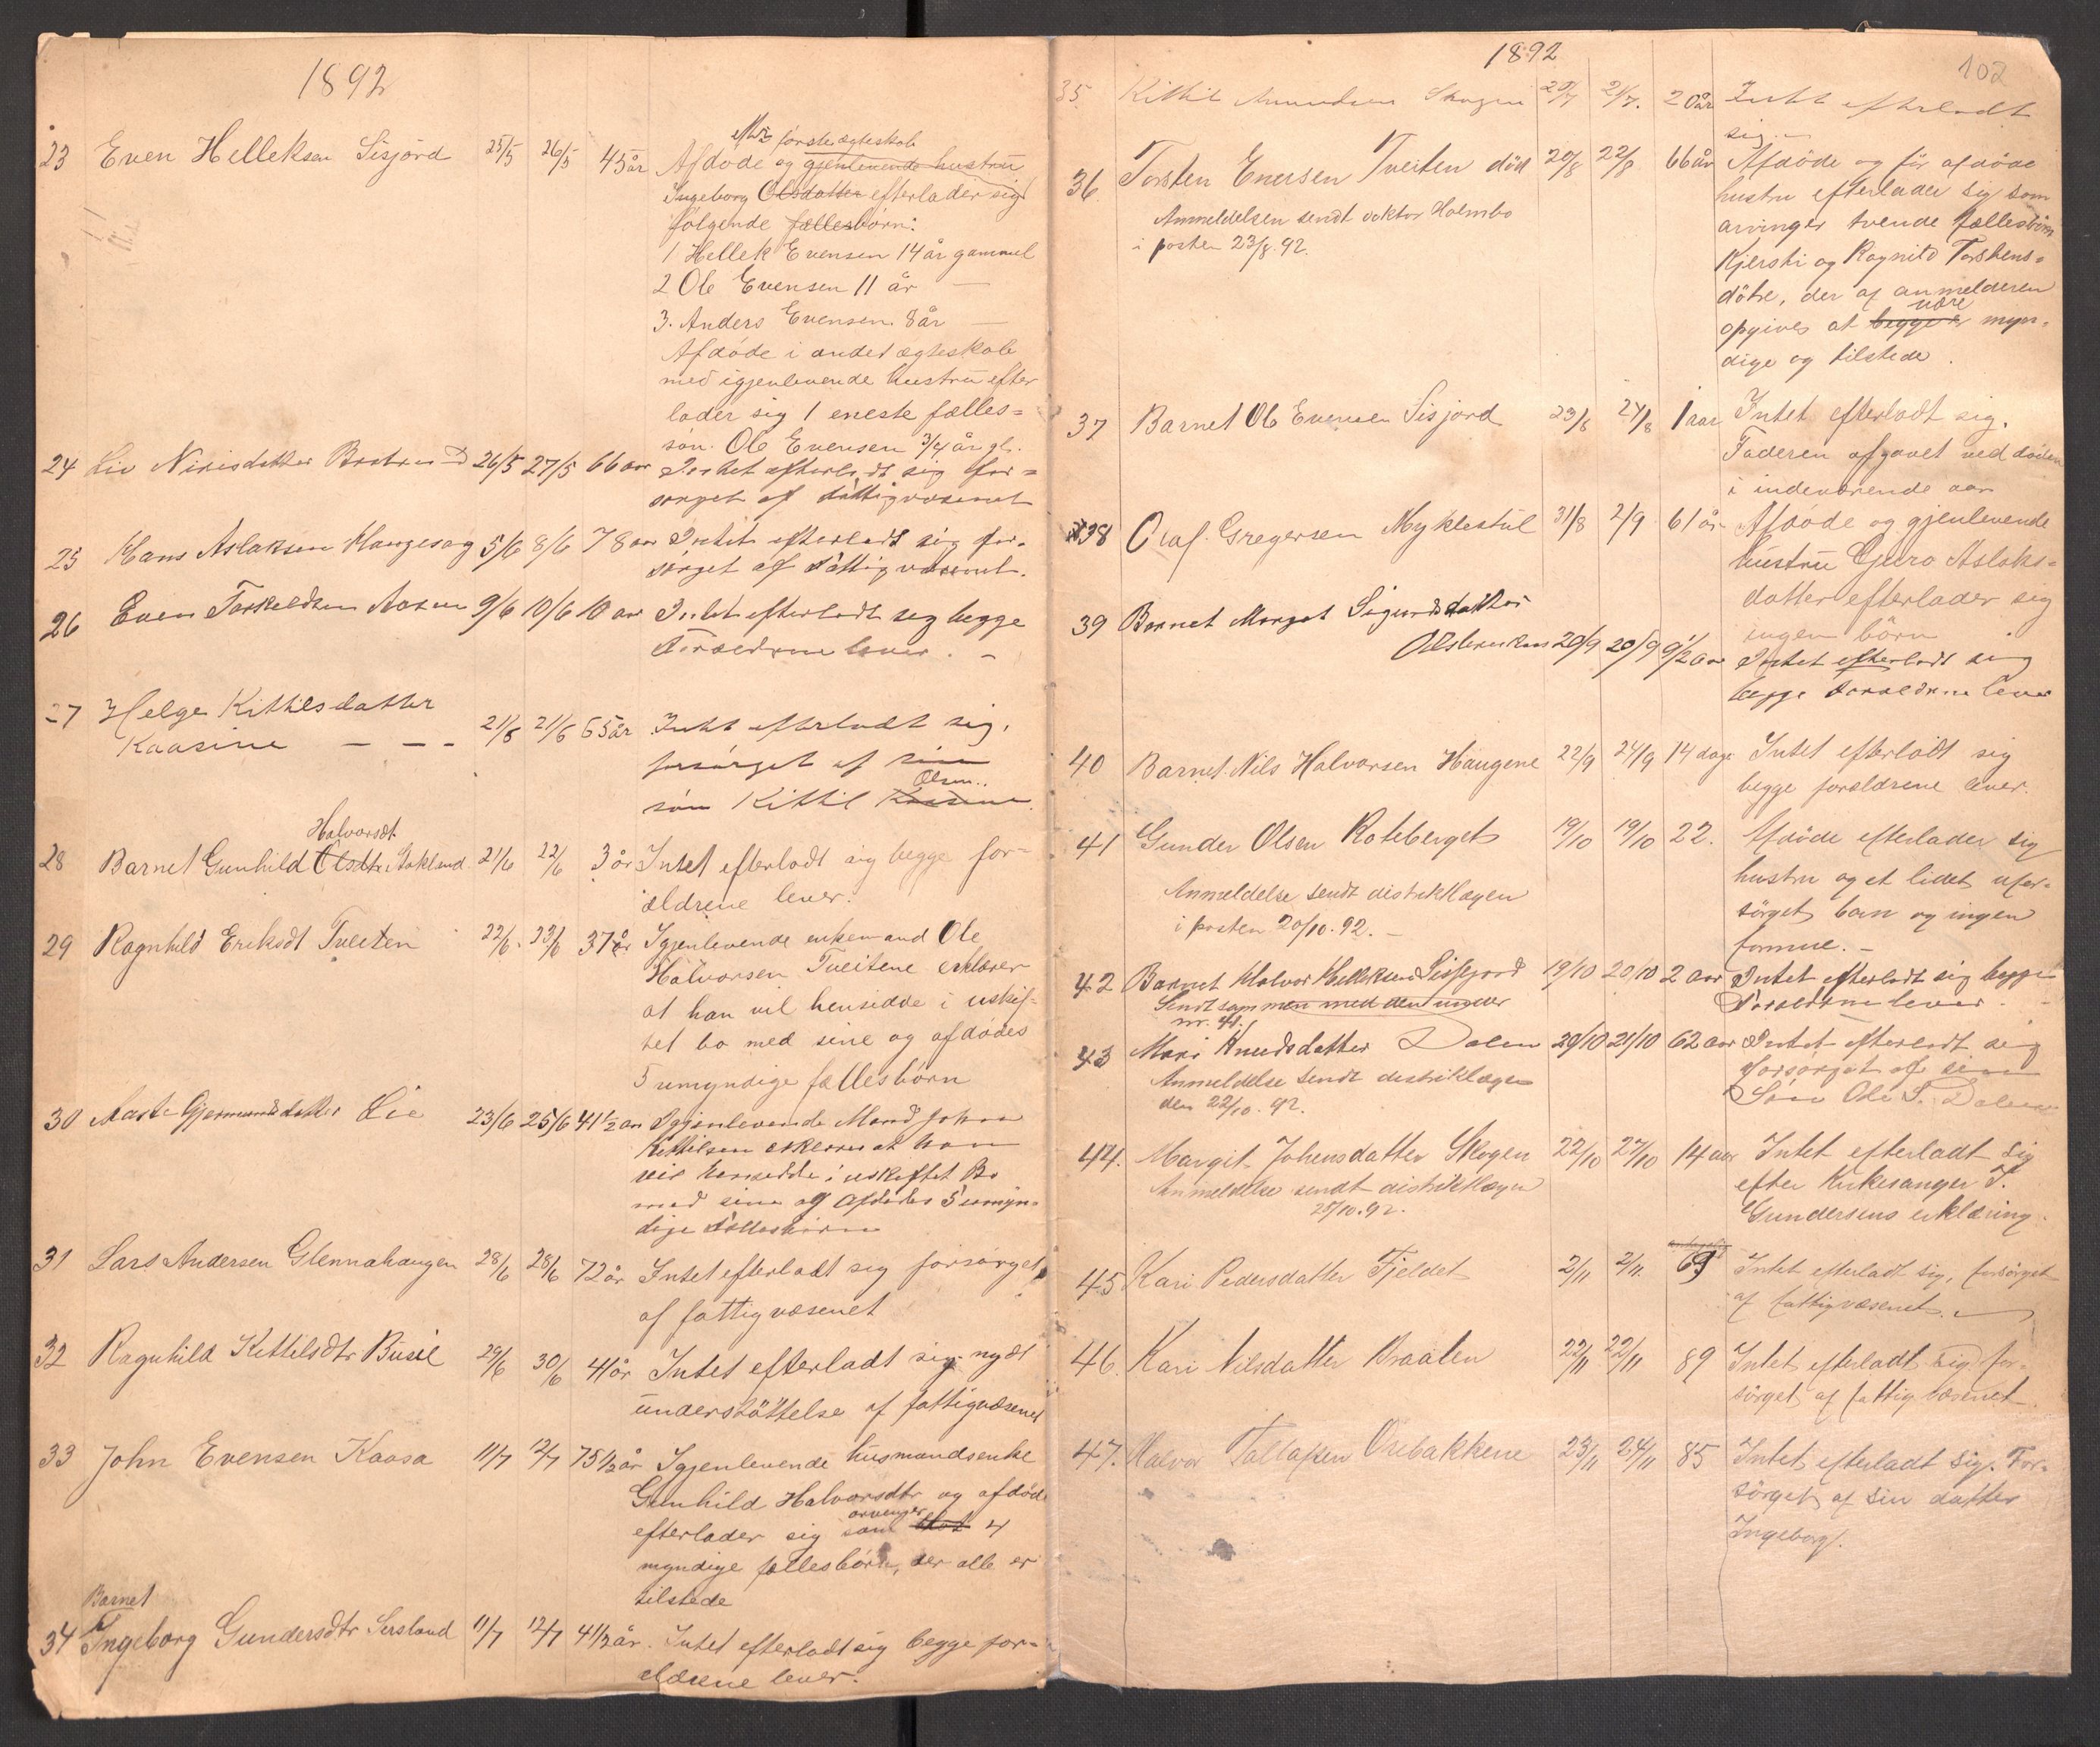 1892
23 Even Helleksen Sisjord 25/5 26/5 45 år Afdøde og gjenlevende hustru
første ægteskab
Ingeborg Olsdatter efterlader sig
følgende fællesbørn:
1 Hellek Evensen 14 år gammel
2 Ole Evensen 11 år —
3. Anders Evensen 8 år —
Afdøde i andet ægteskab
med igjenlevende hustru efter
lader sig 1 eneste fælles=
søn. Ole Evensen 3/4 år gl.
24 Liv Nirisdatter 26/5 27/5 66 aar Intet efterladt sig for=
sørget af Fattigvæsenet
25 Hans Aslaksen Haugesag 5/6 8/6 78 aar Intet efterladt sig for-
sørget af Fattigvæsenet.
26 Even Torkeldsen Aasen 9/6 10/6 10 aar Intet efterladt sig begge
Foræeldrene lever. –
27 Helge Kittilsdatter
Kaasine — — - 21/6 21/6 65 år Intet efterladt sig,
forsørget af sin
Olsen..
søn Kittil Kaasene.
Halvorsdt.
28 Barnet Gunhild Olsdtr. Stokland 21/6 22/6 3 år Intet efterladt sig begge for=
ældrene lever.
29 Ragnhild Eriksdt Tveiten 22/6. 23/6 37 år Igjenlevende enkemand Ole
Halvorsen Tveitene erklærer
at han vil hensidde i uskif=
tet bo med sine og afdødes
5 umyndige fællesbørn
30 Aaste Gjermundsdatter Lie 23/6 25/6 41 1/2 aar Igjenlevende Mand Johan
Kittilsen erklerer at han
vil hensidde i uskiftet Bo
med sine og Afdødes 5 umyn=
dige Fællesbørn
31 Lars Andersen Glennahaugen 28/6 28/6 72 år Intet efterladt sig forsørget
af fattigvæsenet
32 Ragnhild Kittilsdtr Busel 29/6 30/6 41 år Intet efterladt sig nydt
understøttelse af fattigvæsenet
33 John Evensen Kaasa 11/7 12/7 75 1/2 år Igjenlevende husmandsenke
Gunhild Halvorsdtr og afdøde
arvinger
efterlader sig som 4
myndige fællesbørn, der alle er
tilstede
Barnet
34 Ingeborg Gundersdtr Sisland 11/7 12/7 4 1/2 år. Intet efterladt sig begge for=
ældrene lever.
1892
102
35. Kittil Amundsen Skogen 20/7 21/7. 20 år Intet efterladt
sig. –
36 Torsten Enersen Tveiten död 20/8 22/8 66 år Afdøde og før afdøde
hustru efterlader sig som
Anmeldelsen sendt doktor Holmbo
i posten 23/8 92.
arvinger tvende fællesbørn
Kjersti og Ragnild Torstens=
døtre, der af anmelderen
være
opgives at begge er myn=
dige og tilstede.
37 Barnet Ole Evensen Sisjord 23/8 24/8 1 aar Intet efterladt sig.
Faderen afgaaet ved døden
i indeværende aar
38 Olaf Gregersen Myklestul 31/8 2/9 61 år Afdøde og gjenlevende
hustru Guro Aslaks=
datter efterlader sig
ingen børn
39 Barnet Margat Sigurdsdatter
20/9 20/9 9 1/2 aar Intet efterladt sig
begge Foraeldrene lever
40 Barnet Nils Halvorsen Haugene 22/9 24/9 14 dage Intet efterladt sig
begge forældrene lever.
41 Gunder Olsen Roteberget 19/10 19/10 22. Afdøde efterlader sig
hustru og et lidet ufor=
Anmeldelse sendt distriktlægen
sørget barn og ingen
i posten 20/10. 92. –
formue. –
42 Barnet Halvor Helleksen Sissjord 19/10 20/10 2 aar Intet efterladt sig begge
Foraeldrene lever. –
Sendt sammen med den under
nr. 41.
43 Mari Knudsdatter Dalen 20/10 21/10 62 aar Intet efterladt sig
Forsørget af sin
Anmeldelse sendt distriktlægen
den 22/10. 92.
Søn Ole T. Dalen
44. Margit Johensdatter Skogen 22/10 27/10 14 aar Intet efterladt sig
Anmeldelse sendt distriktlægen
28/10. 92.
efter Kirkesanger T.
Gundersens erklæring.
45 Kari Pedersdatter Fjeldet 2/11 2/11. 69 Intet efterladt sig, forsørget
af fattigvæsenet.
46. Kari Nilsdatter Braaten 22/11 22/11 89 Intet efterladt sig for=
sørget af fattigvæsenet.
47. Halvor Tallafsen Orebakkene 23/11 24/11 85 Intet efterladt sig. For=
sørget af sin datter
Ingeborg.